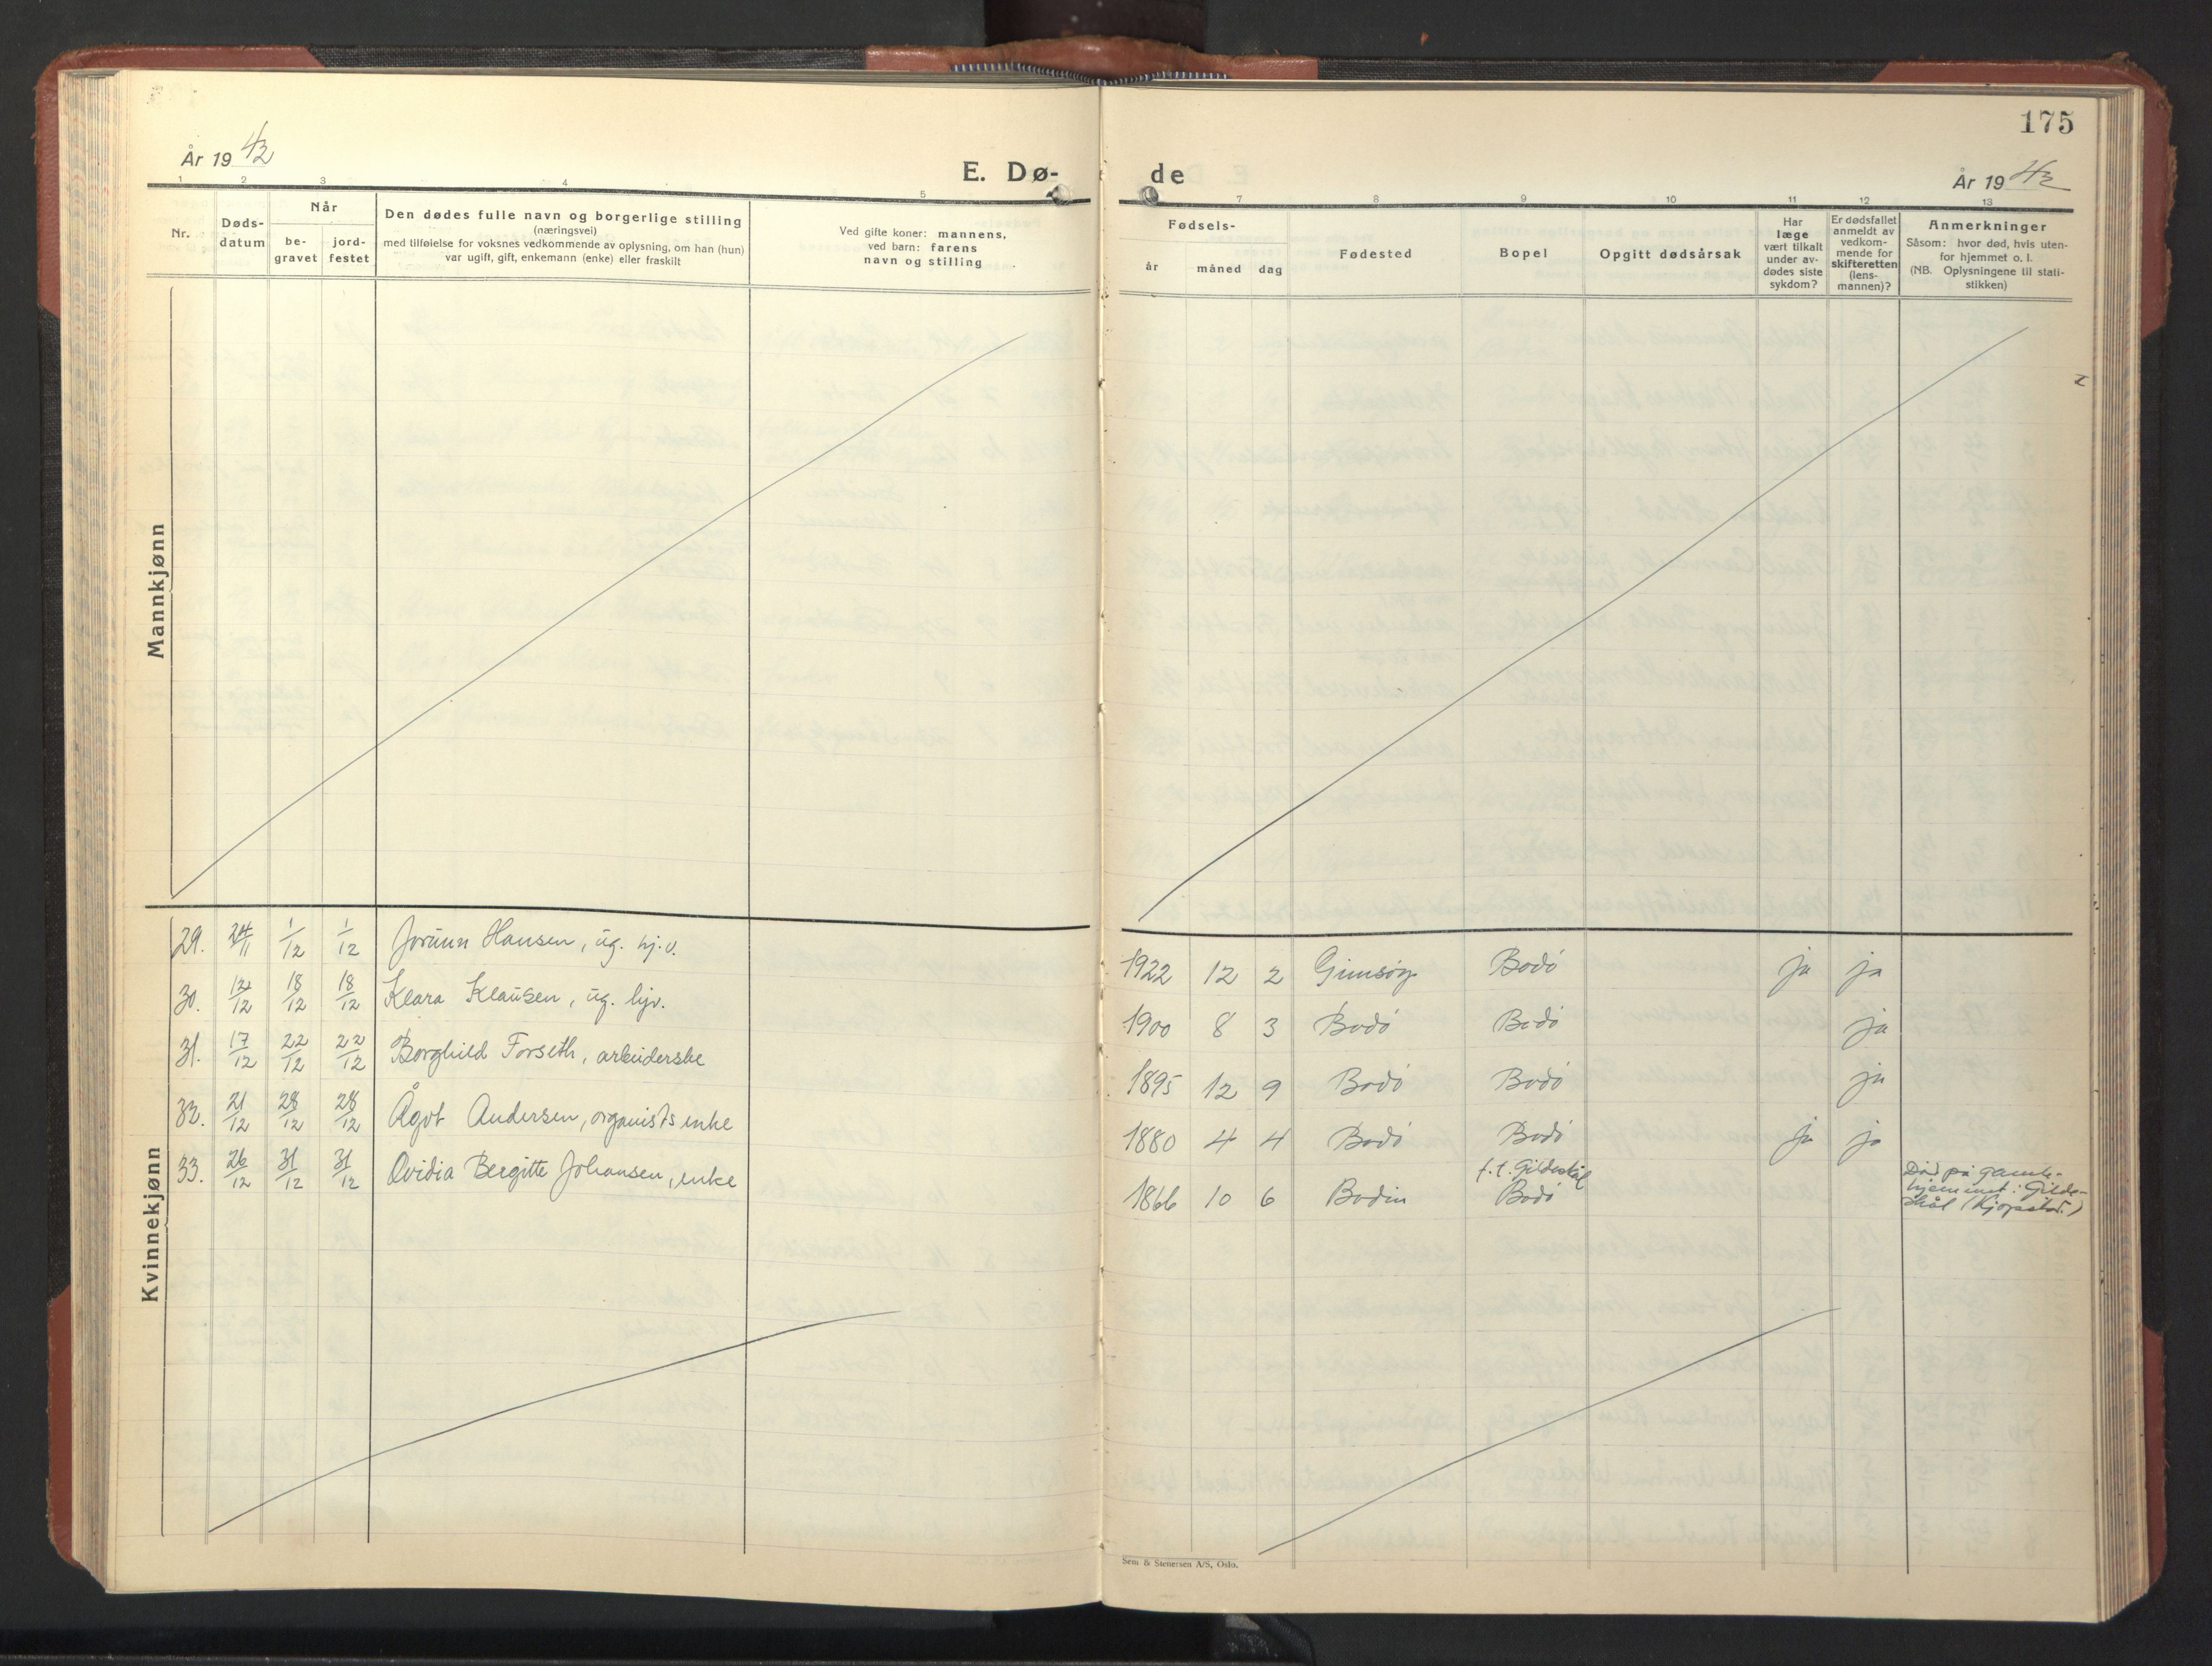 175
År 1942
E. Dø-
de
År 1942
1 2 3 4 5
7 8 9 10 11 12 13
Nr.
Døds-
datum
Når
be-
gravet
jord-
festet
Den dødes fulle navn og borgerlige stilling
(næringsvei)
med tilføielse for voksnes vedkommende av oplysning, om han (hun)
var ugift, gift, enkemann (enke) eller fraskilt
Ved gifte koner: mannens,
ved barn: farens
navn og stilling
Fødsels-
år måned dag
Fødested
Bopel
Opgitt dødsårsak
Har
læge
vært tilkalt
under av-
dødes siste
sykdom?
Er dødsfallet
anmeldt av
vedkom-
mende for
skifteretten
(lens-
mannen)?
Anmerkninger
Såsom: hvor død, hvis uten-
for hjemmet o. l.
(NB. Oplysningene til stati-
stikken)
Mannkjønn
Kvinnekjønn
29. 24/11 1/12 1/12 Jorunn Hansen, ug. hj.v. 1922 12 2 Gimsøy Bodø ja ja
30. 12/12 18/12 18/12 Klara Klausen, ug. hjv. 1900 8 3 Bodø Bodø ja
31. 17/12 22/12 22/12 Borghild Forseth, arbeiderske 1895 12 9 Bodø Bodø ja
32. 21/12 28/12 28/12 Ågot Andersen, organists enke 1880 4 4 Bodø Bodø ja ja
33. 26/12 31/12 31/12 Ovidia Bergitte Johansen, enke 1866 10 6 Bodin f.t. Gildeskål
Bodø
Død på gamle-
hjemmet i Gilde-
skål (Kjopstad.)
Sem & Stenersen A/S, Oslo.